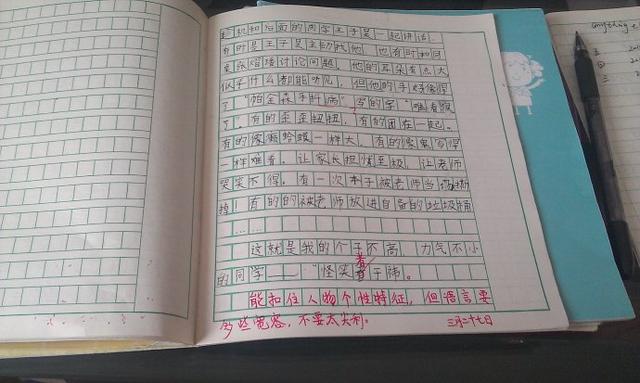 anything e
机和后面的同学王子昊一起讲话。
有时是王子昊主动找他，也有时和同
桌张熠瑶讨论问题。他的耳朵有点大
似乎什么都能听见，但他的手好像得
了“帕金森手抖病”，写的字“难看
了”有的歪歪扭扭，有的团在一起。
有的像癞蛤蟆一样大，有的像鬼写得
一样难看。让家长担忧至极，让老师
哭笑不得。有一次本子被老师当场扬
掉！有的的被老师放进自备的垃圾桶
……
这就是我的个子不高，力气不小
的同学——“怪笑者”子沛。
能和住人物个性特征，但语言要
多些宽容，不要太尖利。
三月二十七日